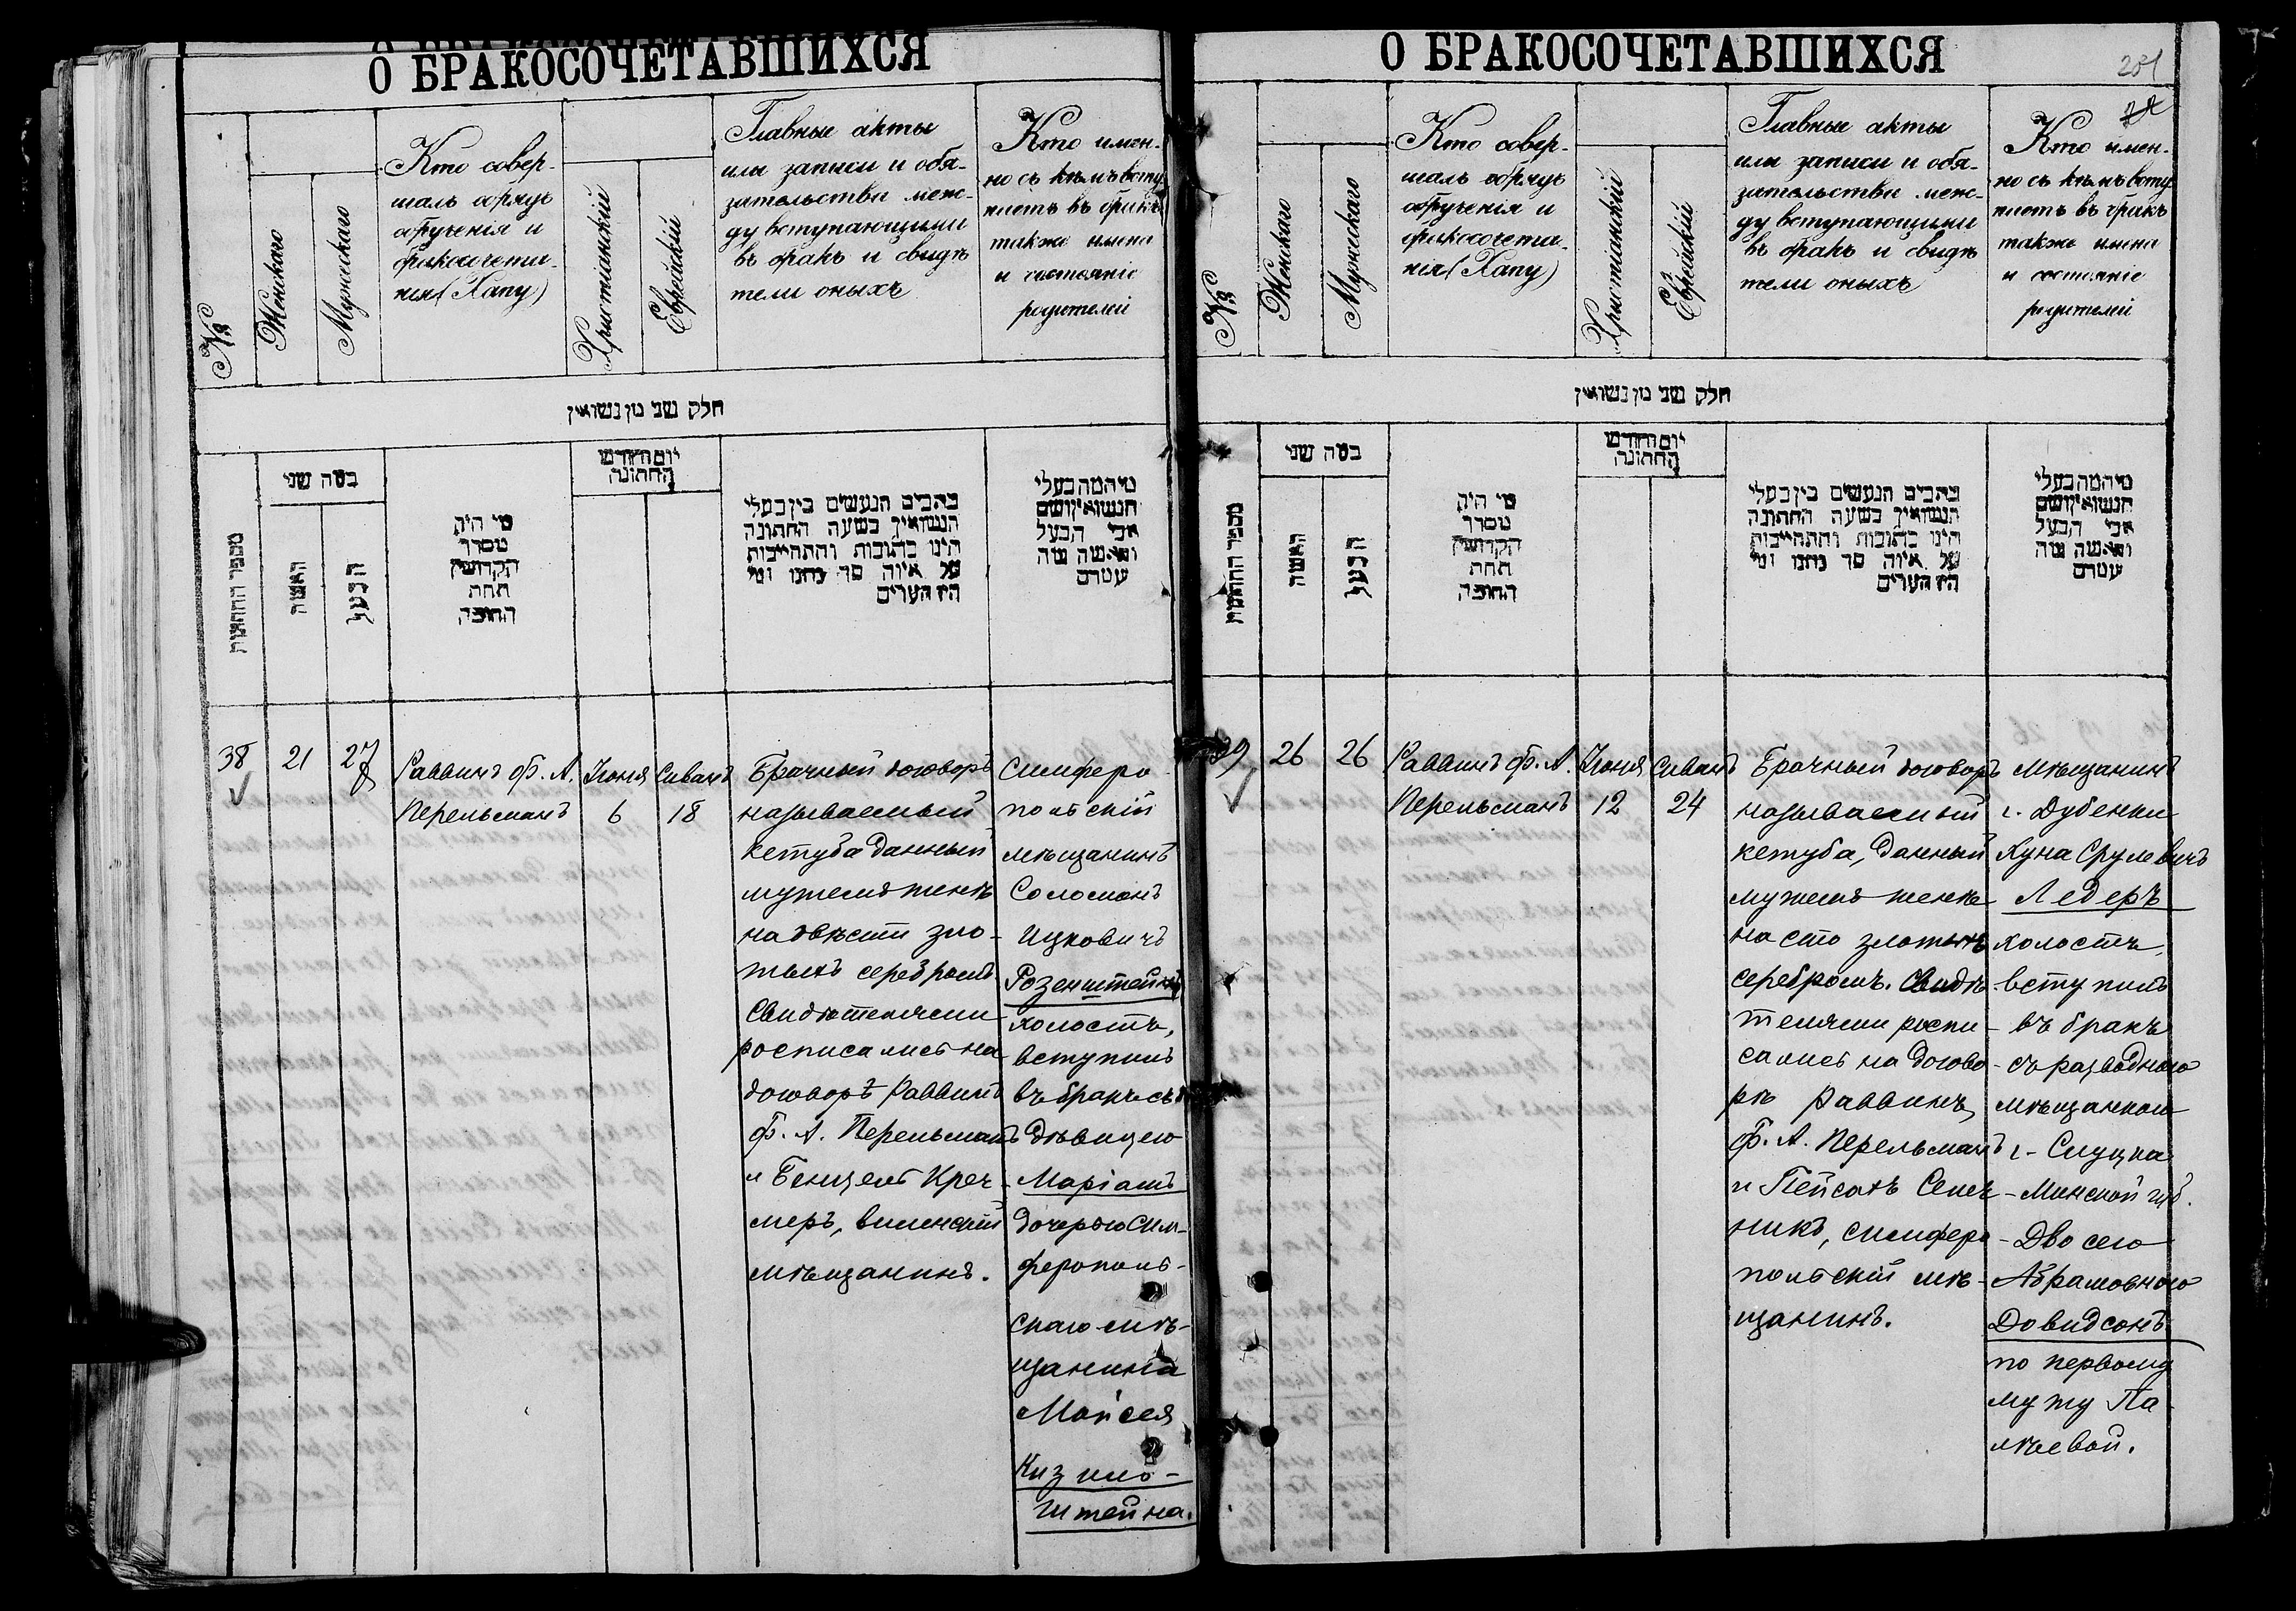 О БРАКОСОЧЕТАВШИХСЯ
№
Женскаго
Мужескаго
Кто совер-
шалъ обрядъ
обрученія и
бракосочета-
нія (Хапу)
Христіанскій
Еврейскій
Главные акты
или записи и обя-
зательства меж-
ду вступающими
въ бракъ и свидѣ
тели оныхъ
Кто имен-
но съ кѣмъ всту
паетъ въ бракъ
также имена
и состояніе
родителей
חלק שני מן נשואין
מספר החתונות
במה שני
האשה
הבעל
מי היה
מסדר
הקדושין
תחת
החופה
יום וחודש
החתונה
כתבים הנעשים בין בעלי
הנשואין בשעה החתונה
היינו כתובות והתחייבות
על איזה סך נתנו ומי
היו הערים
מי המה בעלי
הנשואין ושם
אבי הבעל
והאשה מה
עטרם
38
21
27
Раввинъ Ф. А.
Перельманъ
Іюня
6
Сиванъ
18
Брачный договоръ
называемый
кетуба данный
мужемъ женѣ
на двѣсти зло-
тыхъ серебромъ.
Свидѣтелями
росписались на
договорѣ Раввинъ
Ф. А. Перельманъ
и Бенцелъ Креч-
меръ, виленскій
мѣщанинъ.
Симферо-
польскій
мѣщанинъ
Соломонъ
Ицковичъ
Розенштейнъ
холостъ,
вступилъ
въ бракъ съ
дѣвицею
Маріамъ
дочерью Сим-
ферополь-
скаго мѣ-
щанина
Мойсея
Кизило-
штейна.
О БРАКОСОЧЕТАВШИХСЯ
251
№
Женскаго
Мужескаго
Кто совер-
шалъ обрядъ
обрученія и
бракосочета-
нія (Хапу)
Христіанскій
Еврейскій
Главные акты
или записи и обя-
зательства меж-
ду вступающими
въ бракъ и свидѣ
тели оныхъ
Кто имен-
но съ кѣмъ всту
паетъ въ бракъ
также имена
и состояніе
родителей
חלק שני מן נשואין
מספר החתונות
במה שני
האשה
הבעל
מי היה
מסדר
הקדושין
תחת
החופה
יום וחודש
החתונה
כתבים הנעשים בין בעלי
הנשואין בשעה החתונה
היינו כתובות והתחייבות
על איזה סך נתנו ומי
היו הערים
מי המה בעלי
הנשואין ושם
אבי הבעל
והאשה מה
עטרם
39
26
26
Раввинъ Ф. А.
Перельманъ
Іюня
12
Сиванъ
24
Брачный договоръ
называемый
кетуба, данный
мужемъ женѣ
на сто злотыхъ
серебромъ. Свидѣ-
телями роспи-
сались на догово-
рѣ Раввинъ
Ф. А. Перельманъ
и Пейсахъ Сеня-
никъ, симферо-
польскій мѣ-
щанинъ.
Мѣщанинъ
г. Дубенки
Хуна Срулевичъ
Ледеръ
холостъ,
вступилъ
въ бракъ
съ разводною
мѣщанкой
г. Слуцка
Минской губ.
Двосею
Абрамовною
Довидсонъ
по первому
мужу Па-
лѣевой.